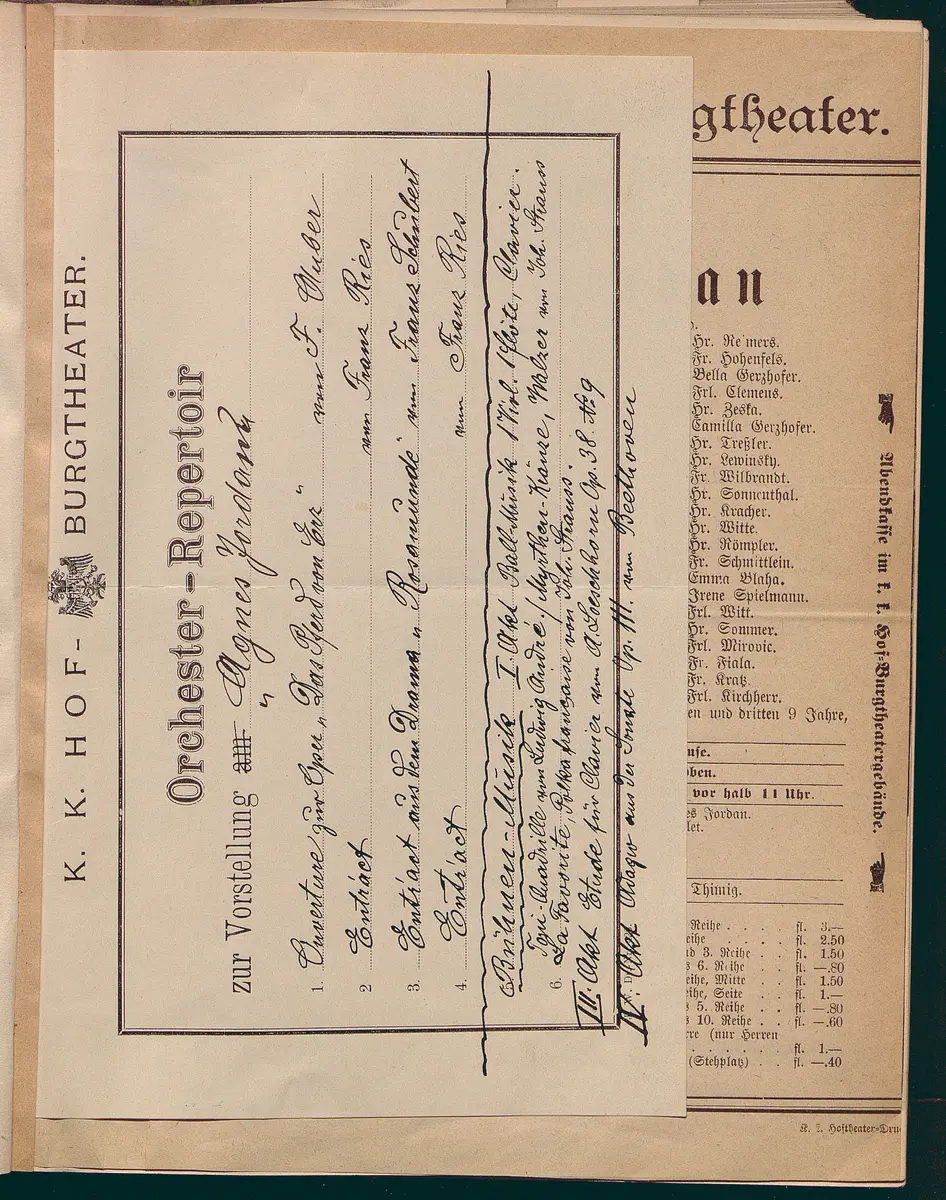 K. K. HOF- BURGTHEATER.
Orchester-Repertoir
zur Vorstellung am „Agnes Jordan“
1. Ouverture zur Oper „Das Pferd von Erz“ von F. Auber
2 Entr'act von Franz Ries
3. Entr'act aus dem Drama „Rosamunde“ von Franz Schubert
4. Entr'act von Franz Ries
5. Bühnen-Musik I. Akt Ball-Musik 1 Viol. 1 Flöte, Clavier.
Quadrille von Ludwig André / Myrthen-Kränze, Walzer von Joh. Strauss
6. La Favorite, Polka française von Joh. Strauss.
III. Akt Etude für Clavier von A. Loeschhorn Op. 38. No 9
IV. Akt Adagio aus der Sonate Op. III. von Beethoven
gtheater.
an
Hr. Reimers.
Fr. Hohenfels.
Bella Gerzhofer.
Frl. Clemens.
Hr. Zeska.
Camilla Gerzhofer.
Hr. Treßler.
Hr. Lewinsky.
Fr. Wilbrandt.
Hr. Sonnenthal.
Hr. Kracher.
Hr. Witte.
Hr. Römpler.
Fr. Schmittlein.
Emma Blaha.
Irene Spielmann.
Frl. Witt.
Hr. Sommer.
Frl. Mirovic.
Fr. Fiala.
Fr. Kratz.
Frl. Kirchherr.
en und dritten 9 Jahre,
use.
oben.
vor halb 11 Uhr.
es Jordan.
let.
Thimig.
Reihe . . . . fl. 3.—
eihe . . . . fl. 2.50
nd 3. Reihe . . fl. 1.50
s 6. Reihe . . fl. —.80
eihe, Mitte . fl. 1.50
eihe, Seite . fl. 1.—
s 5. Reihe . . fl. —.80
s 10. Reihe . . fl. —.60
ere (nur Herren
. . . . . . fl. 1.—
(Stehplatz) . . fl. —.40
Abendkasse im k. k. Hof-Burgtheatergebäude.
K. k. Hoftheater-Dru